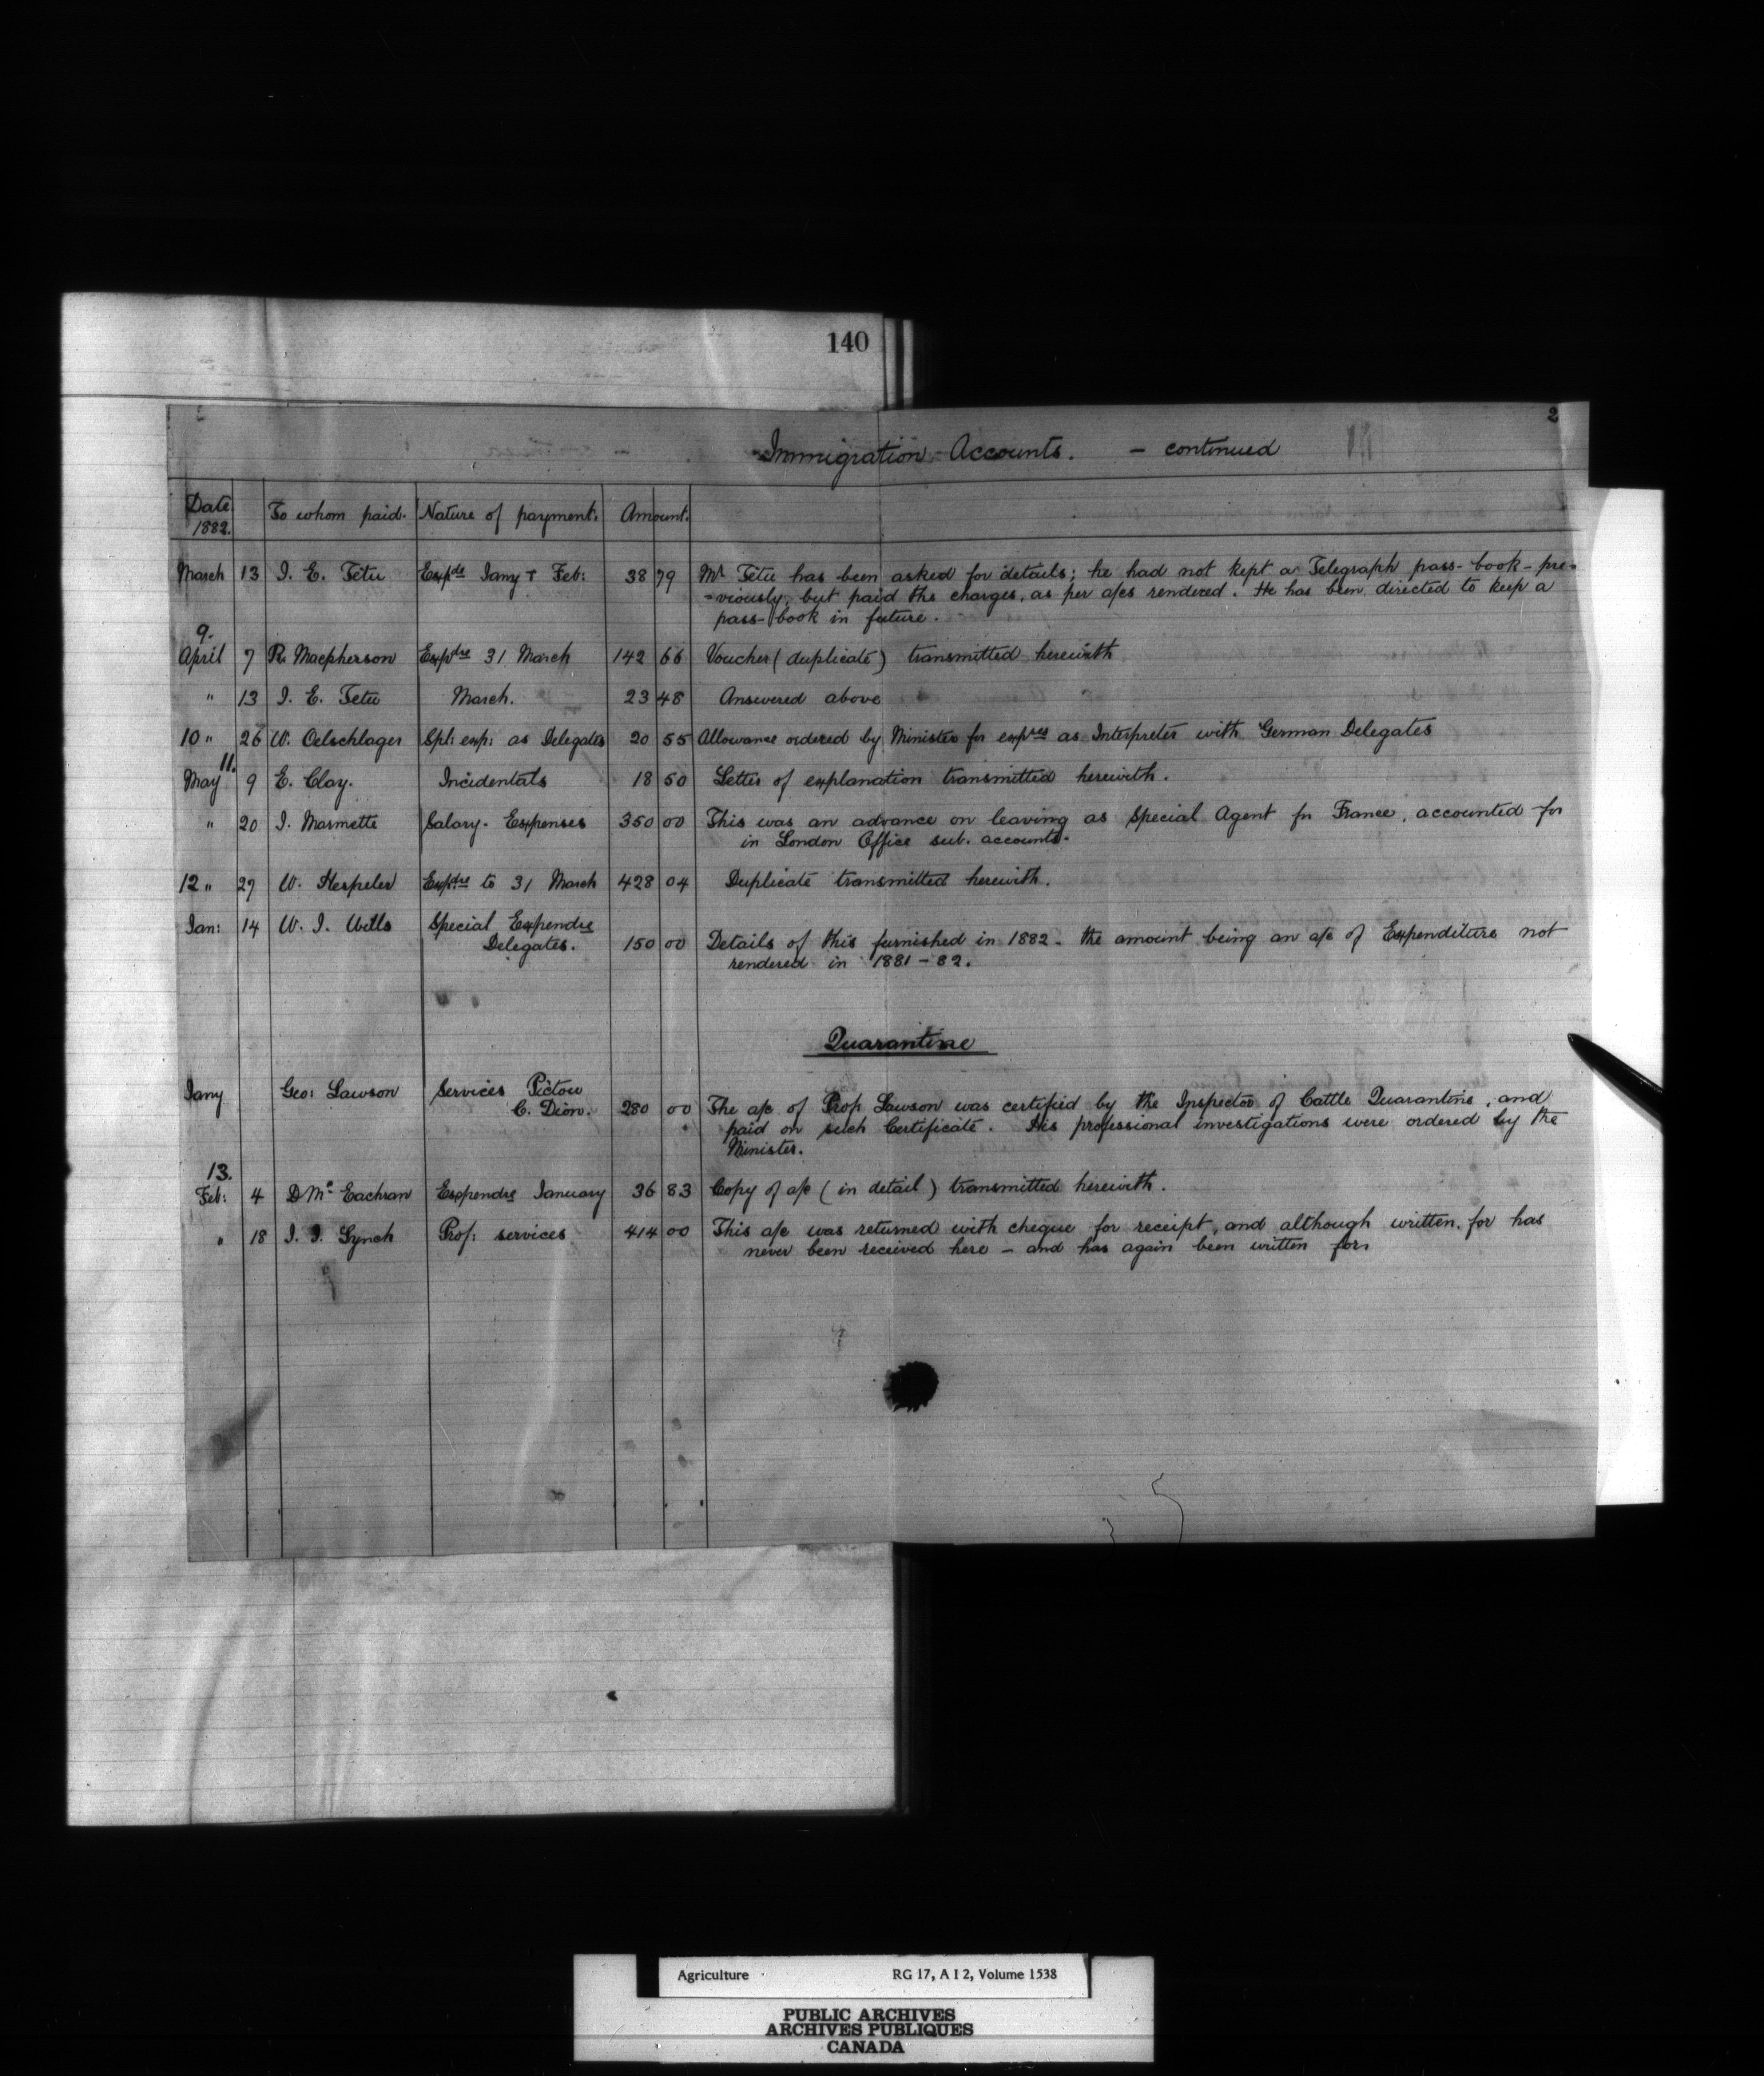 140
2
Immigration Accounts. - continued
Date 1882. To whom paid. Nature of payment. Amount.
March 13 J. E. Têtu Expdre Jany + Feb: 38 79 Mr Têtu has been asked for details; he had not kept a Telegraph pass-book-pre=
=viously, but paid the charges, as per a/cs rendered. He has been directed to keep a
pass-book in future.
9.
April 7 R. Macpherson Expdre 31 March 142 66 Voucher (duplicate) transmitted herewith
" 13 J. E. Tetu March. 23 48 Answered above
10 " 26 W. Oelschlager Spl: exp: as Delegates 20 55 Allowance ordered by Minister for expses as Interpreter with German Delegates
11.
May 9 E. Clay. Incidentals 18 50 Letter of explanation transmitted herewith.
" 20 J. Marmette Salary- Expenses 350 00 This was an advance on leaving as Special Agent for France, accounted for
in London Office sub. accounts.
12 " 27 W. Hespeler Expdre to 31 March 428 04 Duplicate transmitted herewith.
Jan: 14 W. J. Wills Special Expendre
Delegates. 150 00 Details of this furnished in 1882 - the amount being an a/c of Expenditure not
rendered in 1881-82.
Quarantine
Jany Geo: Lawson Services Pictou
C. Dion. 280 00 The a/c of Prof. Lawson was certified by the Inspector of Cattle Quarantine, and
paid on such Certificate. His professional investigations were ordered by the
Minister.
13.
Feb: 4 D McEachran Expendre January 36 83 Copy of a/c (in detail) transmitted herewith.
" 18 J. J. Lynch Prof: services 414 00 This a/c was returned with cheque for receipt, and although written for has
never been received here - and has again been written for.
Agriculture RG 17, A I 2, Volume 1538
PUBLIC ARCHIVES
ARCHIVES PUBLIQUES
CANADA